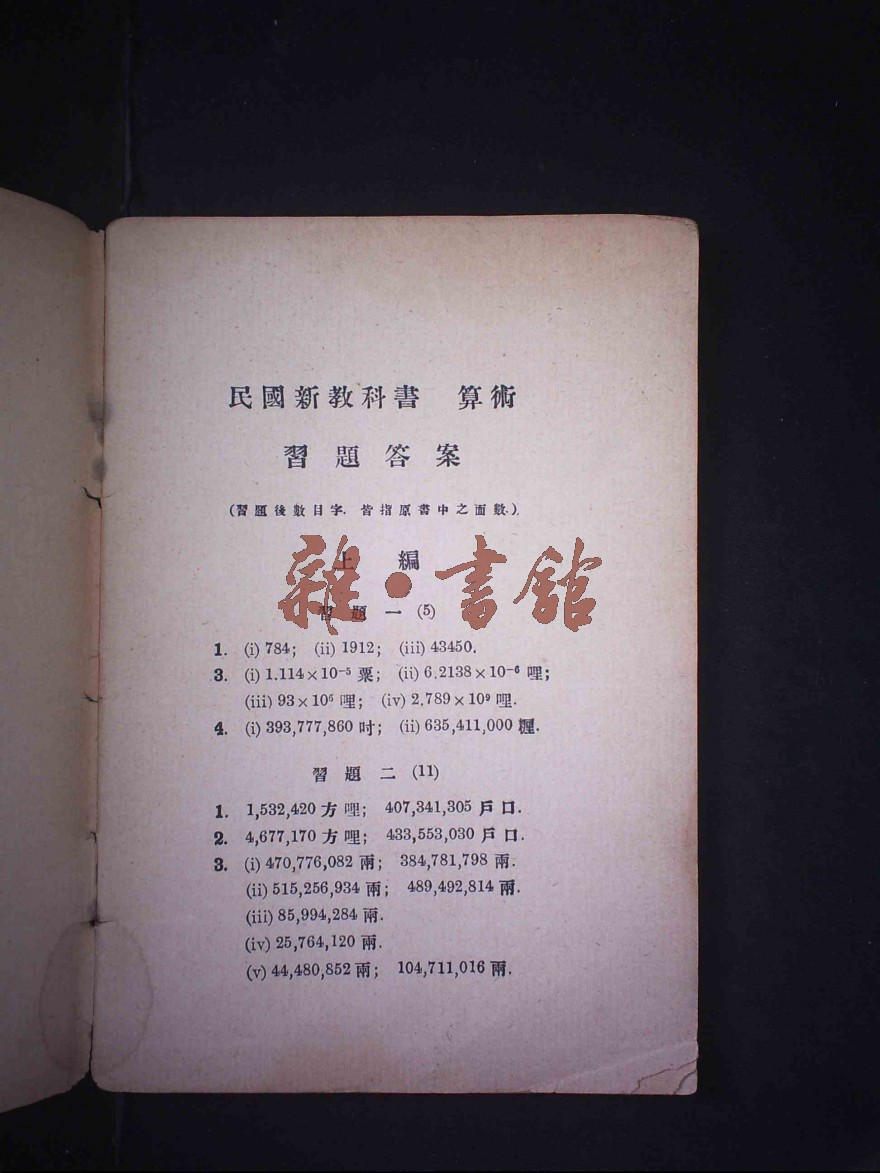 民國新教科書 算術
習題答案
(習題後數目字. 皆指原書中之面數.)
上編
雜·書館
習題一 (5)
1. (i) 784; (ii) 1912; (iii) 43450.
3. (i) 1.114×10⁻⁵ 粟; (ii) 6.2138×10⁻⁶ 哩;
(iii) 93×10⁶ 哩; (iv) 2.789×10⁹ 哩.
4. (i) 393,777,860 吋; (ii) 635,411,000 粴.
習題二 (11)
1. 1,532,420 方哩; 407,341,305 戶口.
2. 4,677,170 方哩; 433,553,030 戶口.
3. (i) 470,776,082 兩; 384,781,798 兩.
(ii) 515,256,934 兩; 489,492,814 兩.
(iii) 85,994,284 兩.
(iv) 25,764,120 兩.
(v) 44,480,852 兩; 104,711,016 兩.